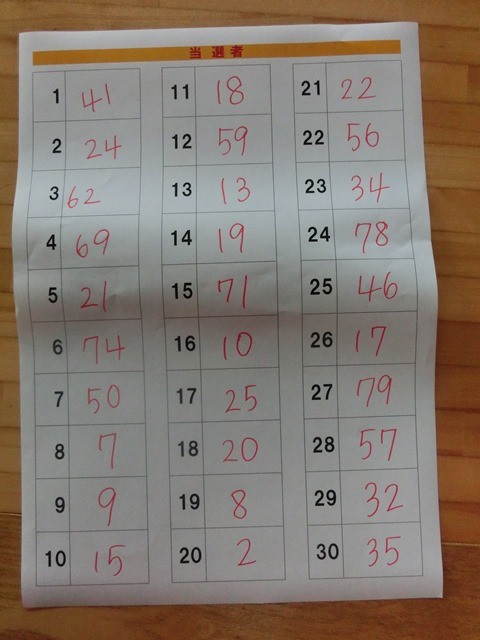 当選者
1 41
2 24
3 62
4 69
5 21
6 74
7 50
8 7
9 9
10 15
11 18
12 59
13 13
14 19
15 71
16 10
17 25
18 20
19 8
20 2
21 22
22 56
23 34
24 78
25 46
26 17
27 79
28 57
29 32
30 35